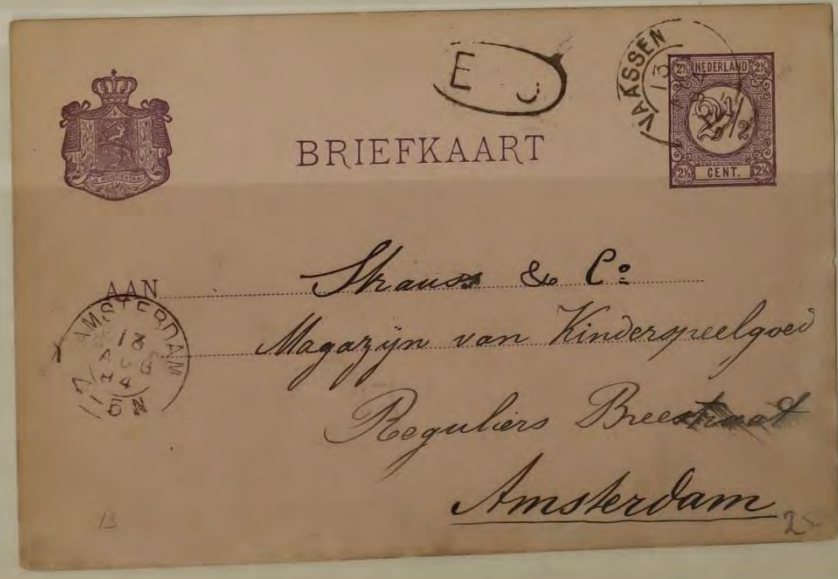 E J
VAASSEN
13
2½ NEDERLAND 2½
2½
2½ CENT. 2½
BRIEFKAART
AAN Strauss & Co
Magazijn van Kinderspeelgoed
Reguliers Breestraat
Amsterdam
AMSTERDAM
13
AUG